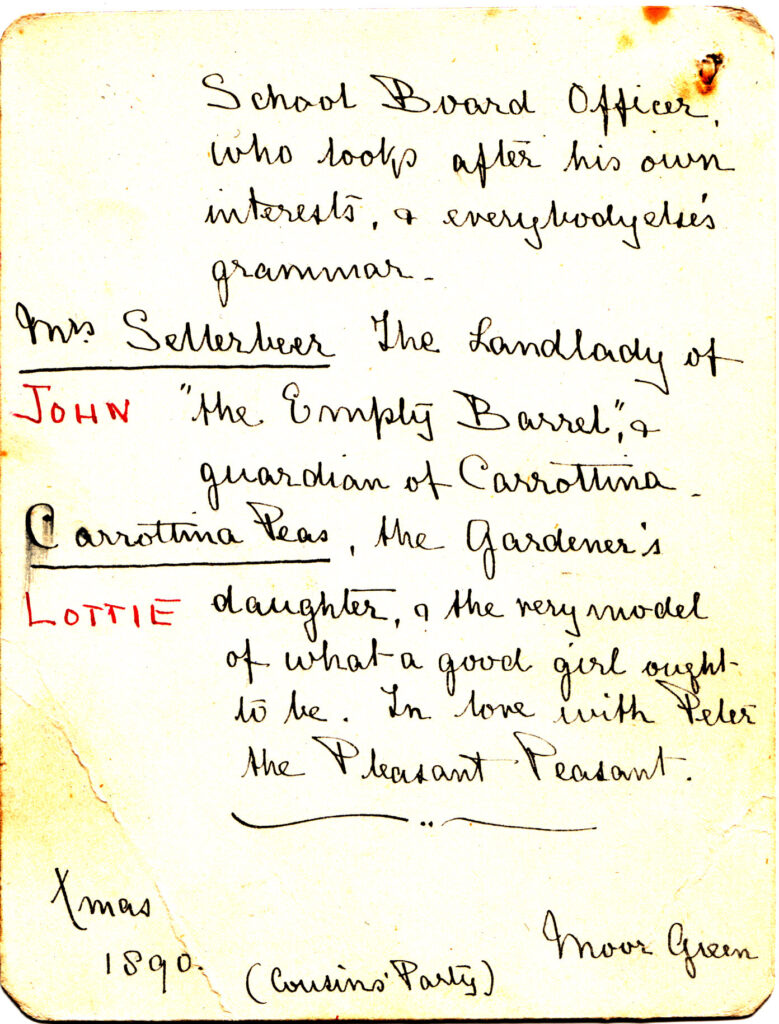 School Board Officer,
who looks after his own
interests, & everybodyelse's
grammar.
Mrs. Sellerbeer The Landlady of
JOHN "the Empty Barrel", &
guardian of Carrottina.
Carrottina Peas, the Gardener's
LOTTIE daughter, & the very model
of what a good girl ought
to be. In love with Peter
the Pleasant Peasant.
Xmas
1890.
(Cousins' Party)
Moor Green